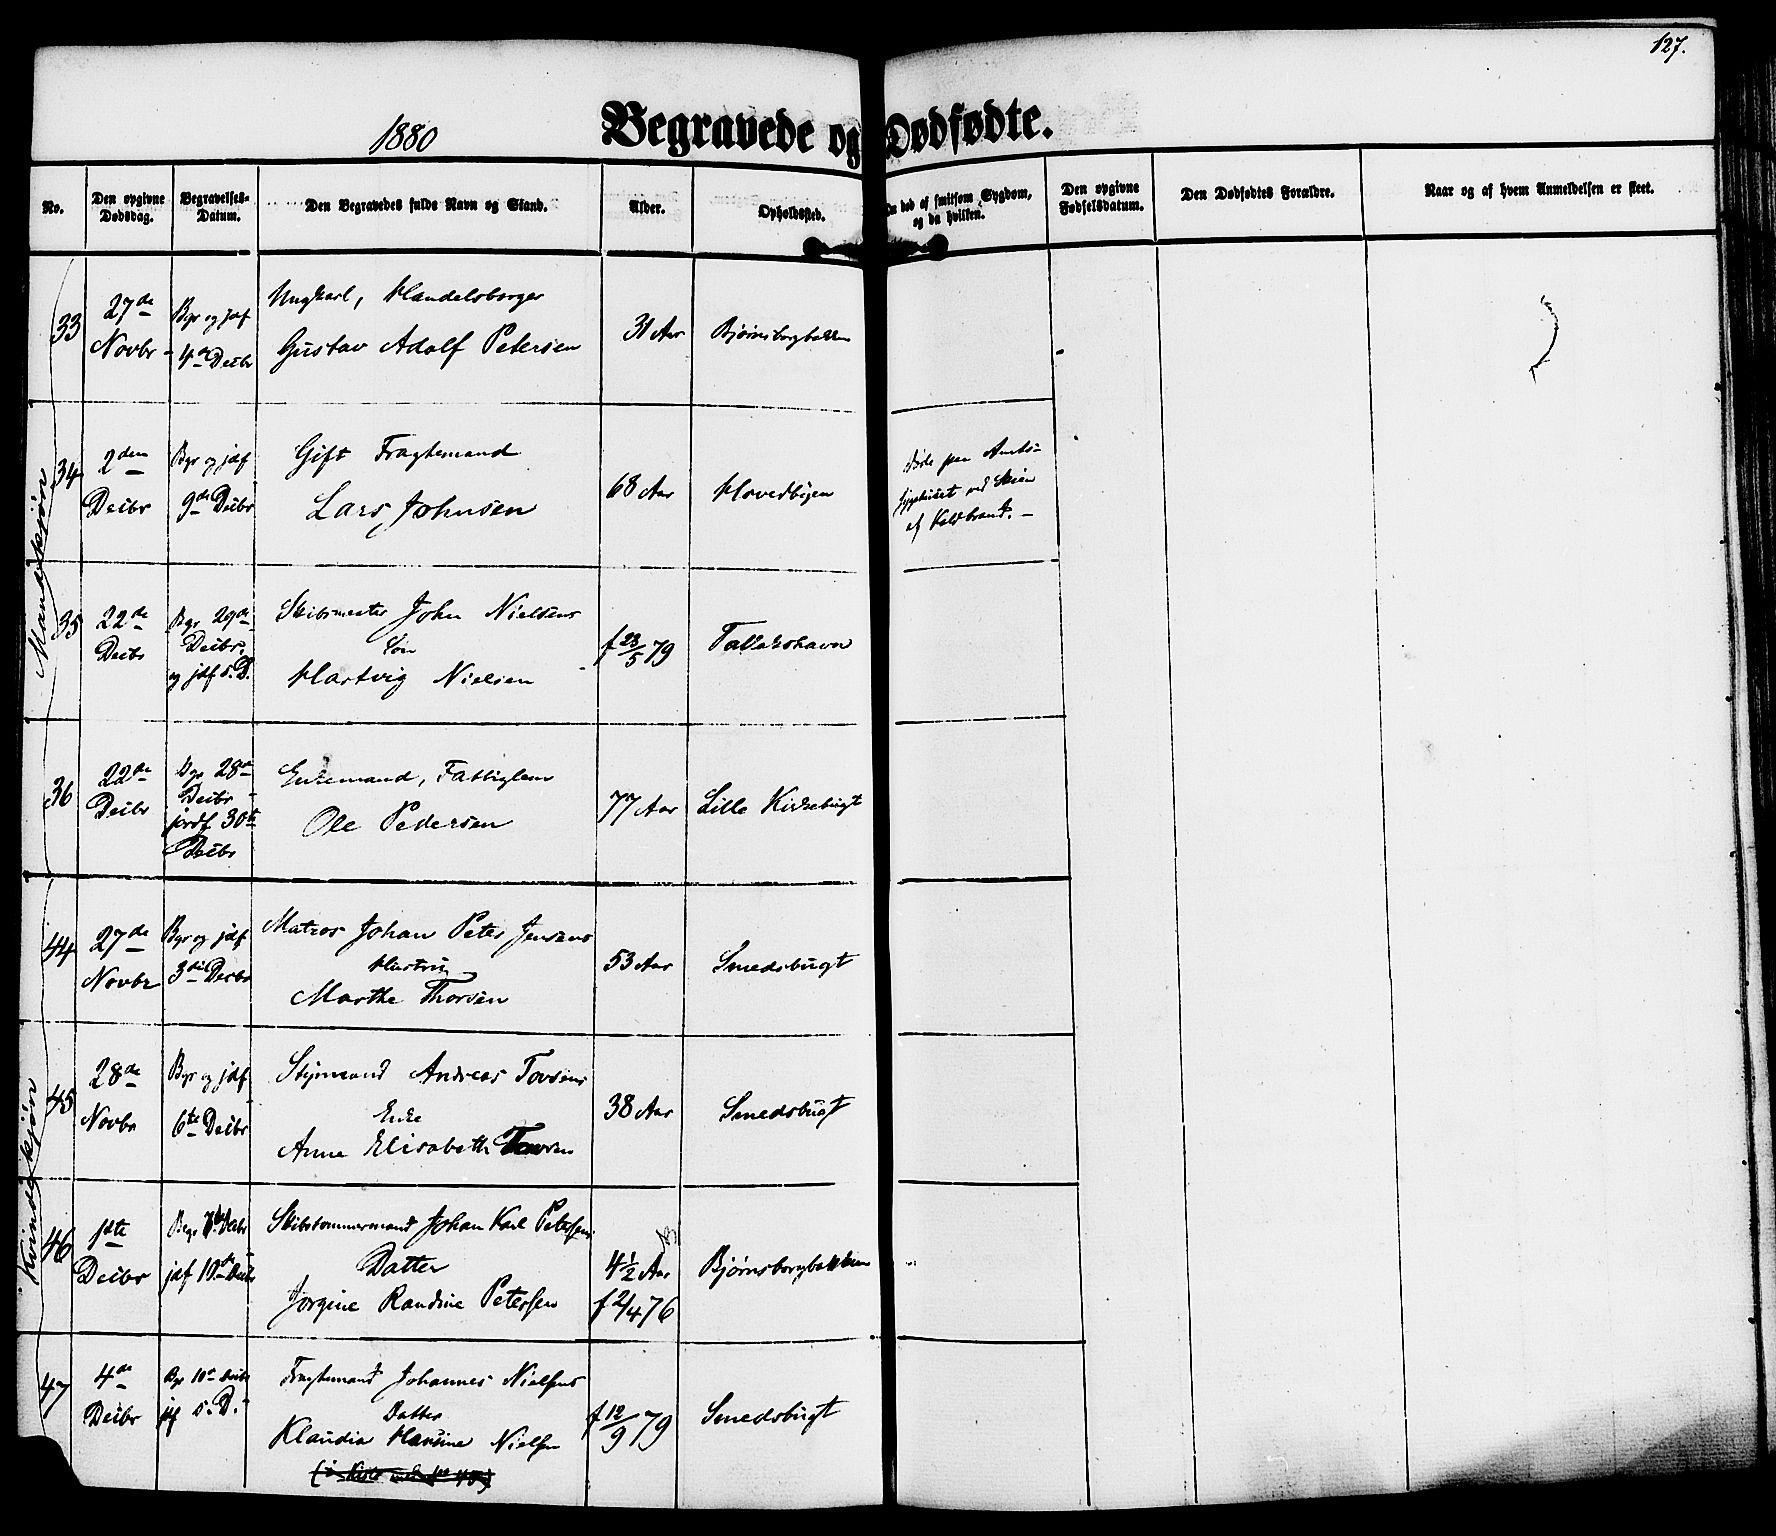 127.
1880
Begravede og Dødfødte.
No.
Den opgivne Dødsdag.
Begravelses-Datum.
Den Begravedes fulde Navn og Stand.
Alder.
Opholdssted.
Om død af smitsom Sygdom, og da hvilken.
Den opgivne Fødselsdatum.
Den Dødfødtes Forældre.
Naar og af hvem Anmeldelsen er skeet.
Mandskjøn
33
27de Novbr
Bgr og jdf 4de Decbr
Ungkarl, Handelsborger
Gustav Adolf Petersen
31 Aar
Bjørnsborgbakken
34
2den Decbr
Bgr og jdf 9de Decbr
Gift Fragtemand
Lars Johnsen
68 Aar
Hovedbyen
Døde paa Amts-
sygehuset ved Skien
af Koldbrand. –
35
22de Decbr
Bgr 29de Decbr. og jdf s. D.
Skibsmester John Nielsens
Søn
Hartvig Nielsen
f 23/5 79
Tallakshavn
36
22de Decbr
Bgr 28de Decbr jordf 30te Decbr
Enkemand, Fattiglem
Ole Pedersen
77 Aar
Lille Kirkebugt
Kvindeskjøn
44
27de Novbr
Bgr og jdf 3die Decbr
Matros Johan Peter Jensens
Hustru
Marthe Thorsen
53 Aar
Smedsbugt
45
28de Novbr
Bgr og jdf 6te Decbr
Styrmand Andreas Tovsens
Enke
Anne Elisabeth Tovsen
38 Aar
Smedsbugt
46
1ste Decbr
Begr 7de Decbr jdf 10de Decbr
Skibstømmermand Johan Karl Petersens
Datter
Jørgine Randine Petersen
4½ Aar
f 2/4 76
Bjørnsborgbakken
47
4de Decbr
Bgr 10de Decbr jdf s. D.
Fragtemand Johannes Nielsens
Datter
Klaudia Hansine Nielsen
f 12/9 79
Smedsbugt